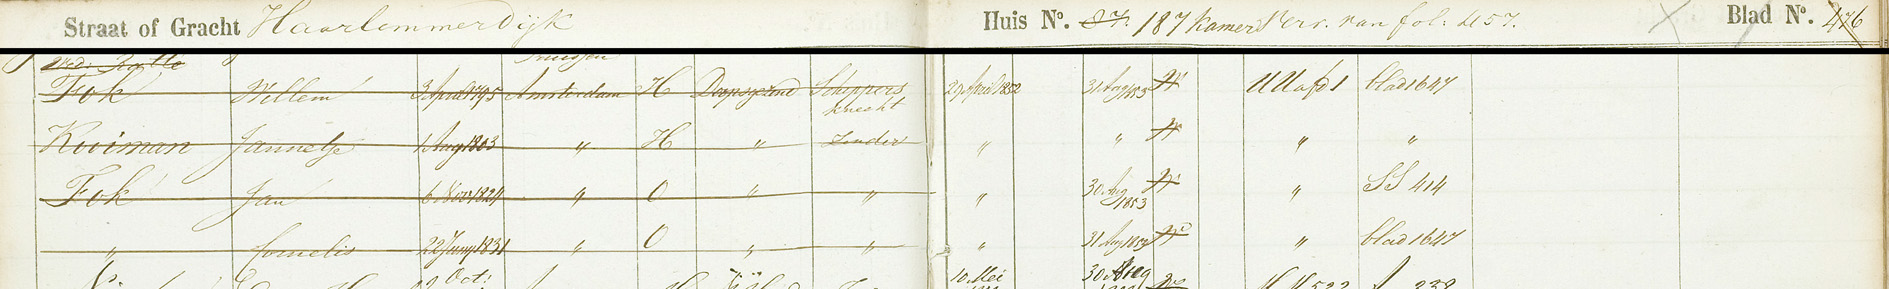 Straat of Gracht Haarlemmerdijk Huis No. 87. 187 kamers Verv. van fol: 457. Blad No. 476
Fok Willem 3 April 1795 Amsterdam H Doopsgezind Schippers knecht 29 April 1852 31 Aug 1853 blad 1647
Kuiman Jannetje 1 Aug 1803 " H " Zonder " " " "
Fok Jan 6 Nov 1824 " O " " " 30 Aug 1853 " SS 414
" Cornelis 22 Juny 1831 " O " " " 31 Aug 1853 " blad 1647
Oct: 10 Mei 30 Aug